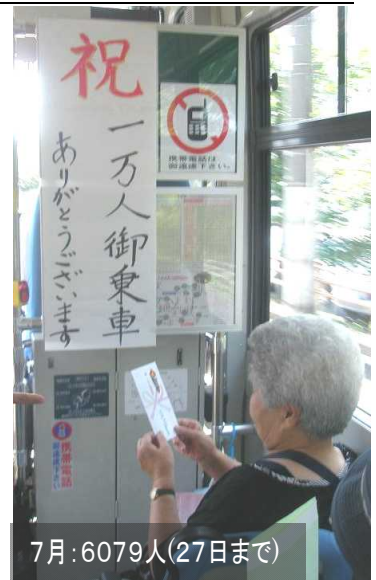 祝
一万人御乗車
ありがとうございます
携帯電話は
御遠慮下さい。
携帯電話
御遠慮下さい
7月:6079人(27日まで)